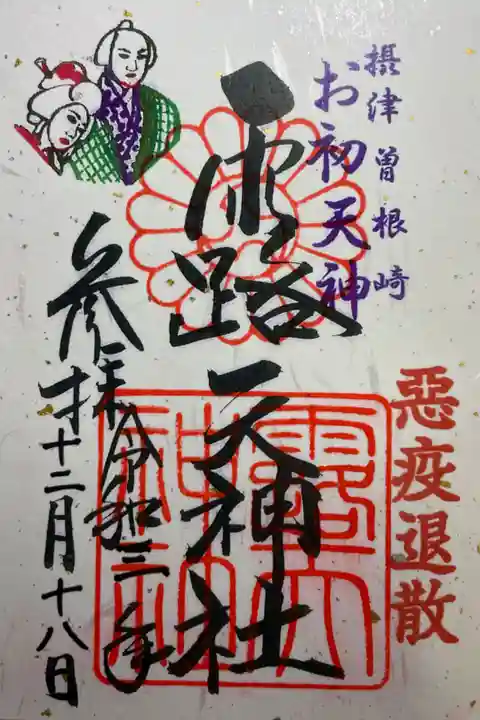 摂津曽根崎
お初天神
悪疫退散
露天神社
参拝令和三年
十二月十八日